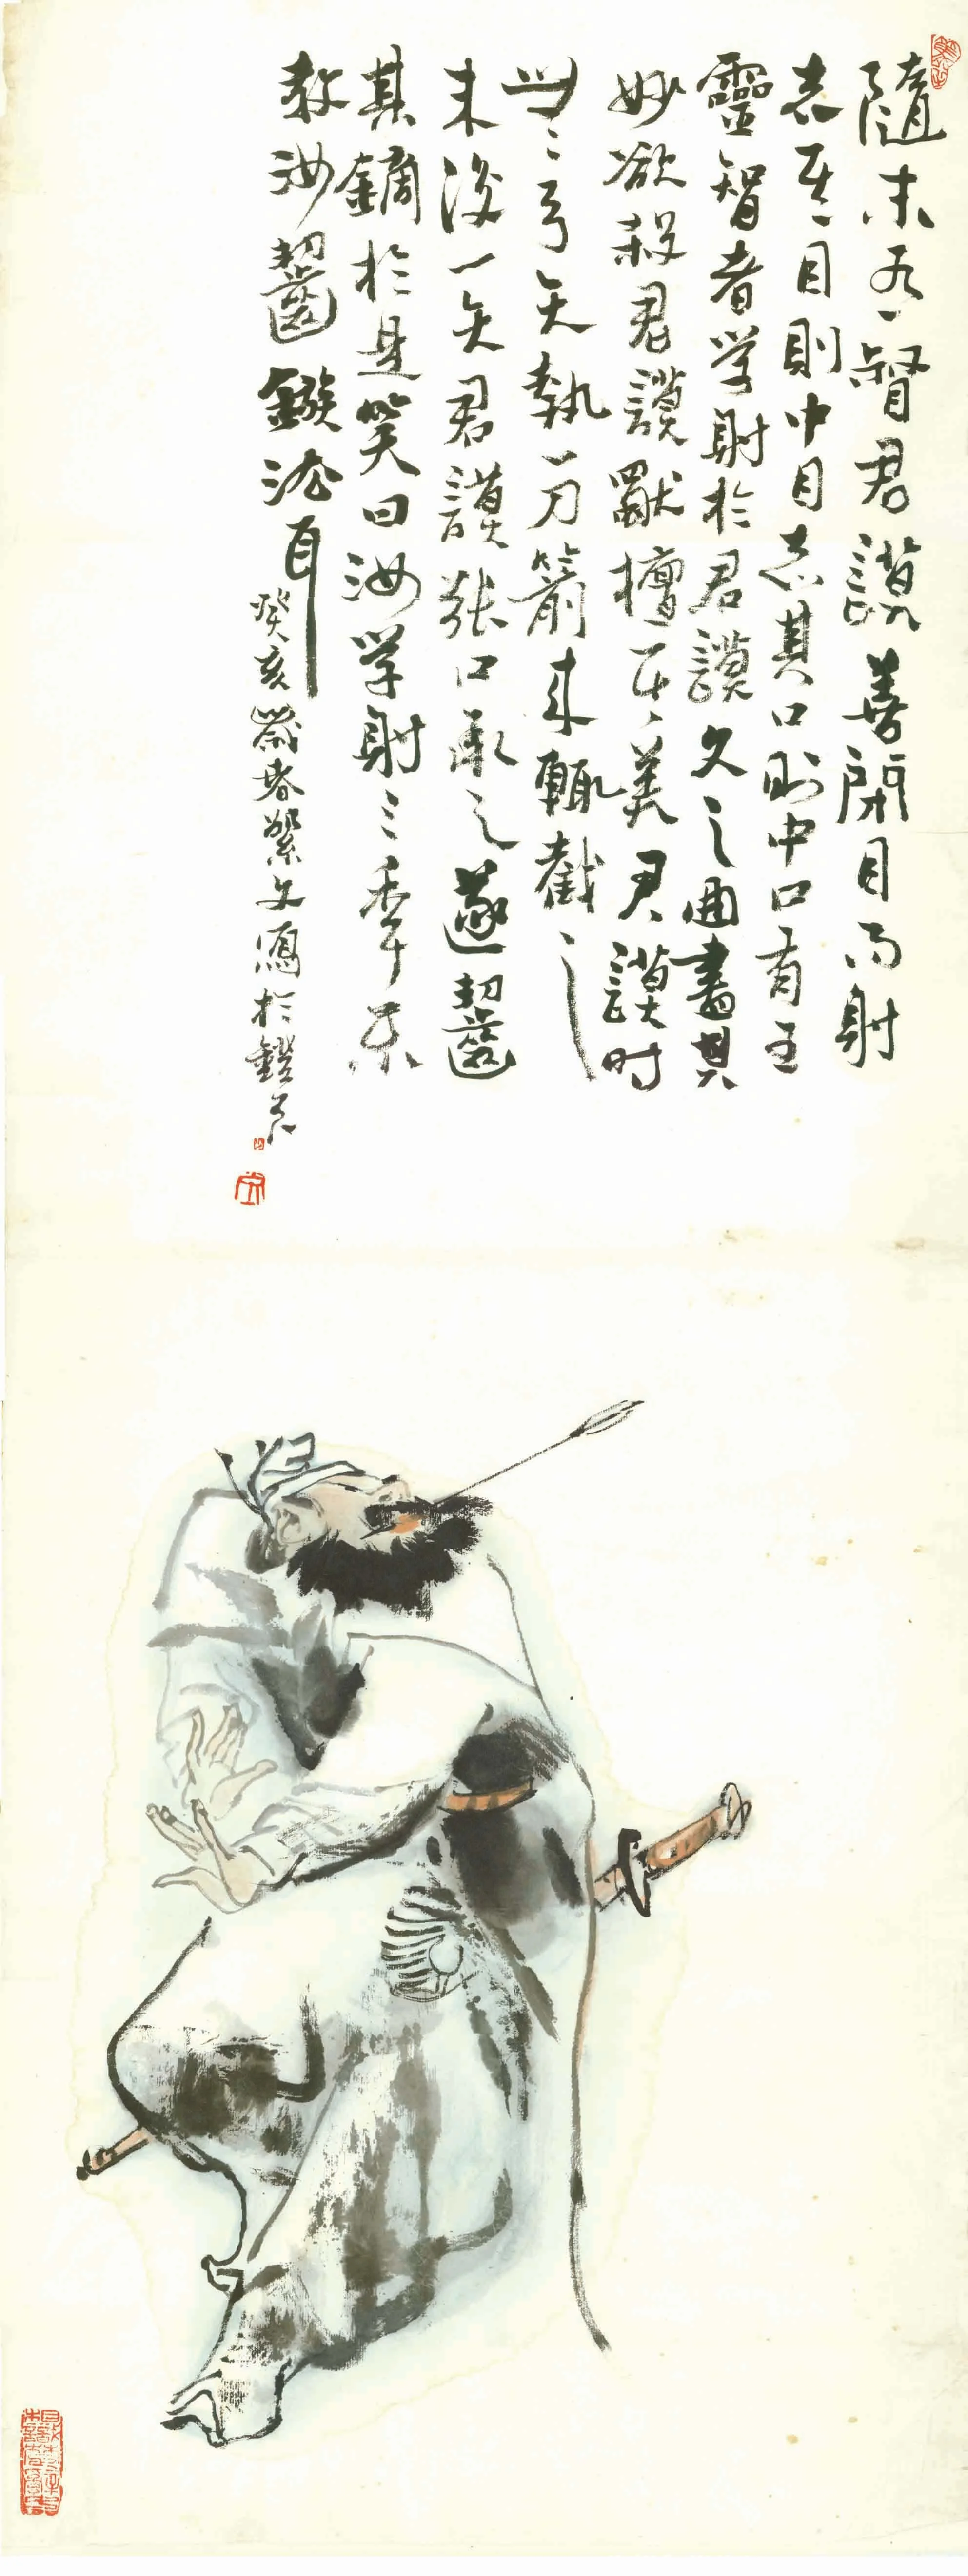 隨末有督君謨善閉目而射
志其目則中目志其口則中口有王
靈智者学射於君謨久之曲盡其
妙欲殺君謨獸擅其美君謨时
無弓矢執一刀箭来輒截之
末後一矢君謨張口承之遂齧
其鏑於是笑曰汝学射三秊未
教汝齧鏃法耳
癸亥歲春 文寫於鐙